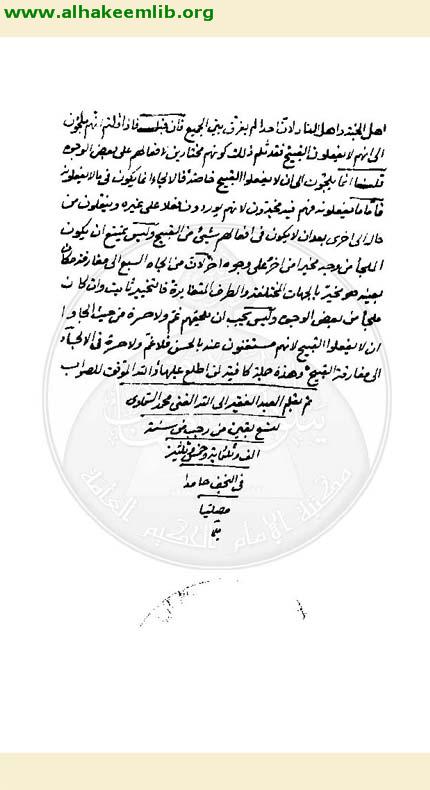 www.alhakeemlib.org
اهل الجنة واهل النار لان احدا لم يفرق بين الجميع فان قيل فاذا قلتم انهم ملجئون
الى انهم لا يفعلون القبيح فقد تم ذلك كونهم مختارين لافعالهم على بعض الوجوه
قلنا انما يلجئون الى ان لا يفعلوا القبيح خاصة فالالجاء انما يكون في ما لا يفعلونه
فاما ما يفعلونه فهم فيه مخيرون لانهم يوثرون فعلا على غيره وينتقلون من
حال الى اخرى بعد ان لا يكون في افعالهم شيئ من القبيح وليس يمتنع ان يكون
الملجأ من وجه مخيرا من اخر على وجوه اخر لان من الجأه السبع الى مفارقة مكان
بعينه هو مخير بالجهات المختلفة والطرق المتغايرة فالتخيير ثابت وان كان
ملجأ من بعض الوجوه وليس يجب ان يلحقهم غم ولا حسرة من حيث الجاوا
ان لا يفعلوا القبيح لانهم مستغنون عنه بالحسن فلا غم ولا حسرة في الالجاء
الى مفارقة القبيح وهذه جملة كافية لمن اطلع عليها والله الموفق للصواب
تم بقلم العبد الفقير الى الله الغني محمد السماوي
لتسع بقين من رجب من سنة
الف وثلثمائة وخمس وثلثين
في النجف حامدا
مصليا